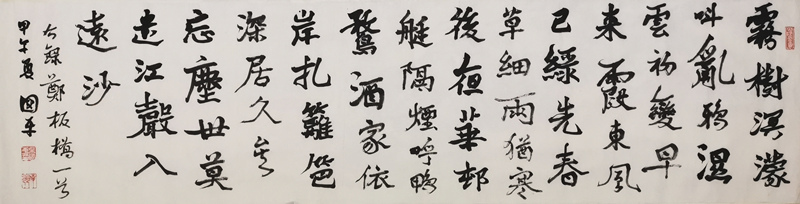 霧樹溟濛
叫亂鴉濕
雲初變早
来霞東風
已綠先春
草細雨猶寒
後夜華邨
艇隔煙呼鴨
鶩酒家依
岸扎籬笆
深居久矣
忘塵世莫
遣江聲入
遠沙
右錄鄭板橋一首
甲午夏國平